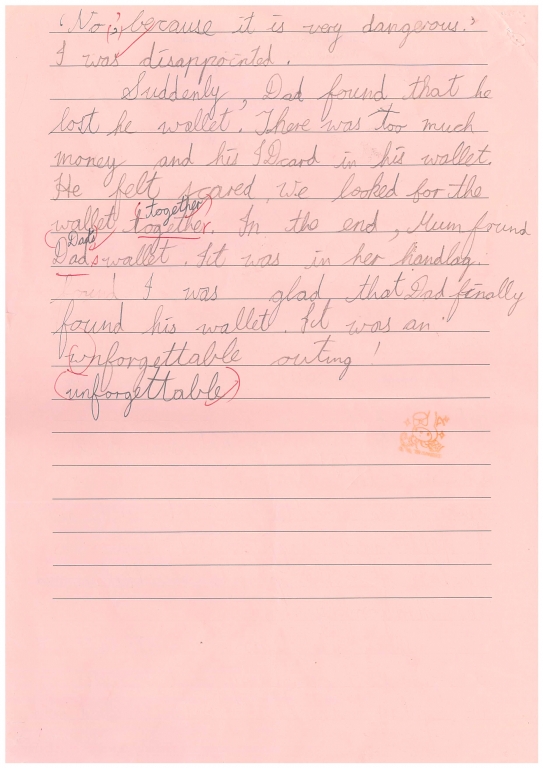 'No, because it is very dangerous.'
I was disappointed.
Suddenly, Dad found that he
lost he wallet. There was too much
money and his ID card in his wallet.
He felt scared. We looked for the
together
wallet together. In the end, Mum found
Dad's
Dad's wallet. It was in her handbag.
I was glad that Dad finally
found his wallet. It was an
unforgettable outing!
(unforgettable)